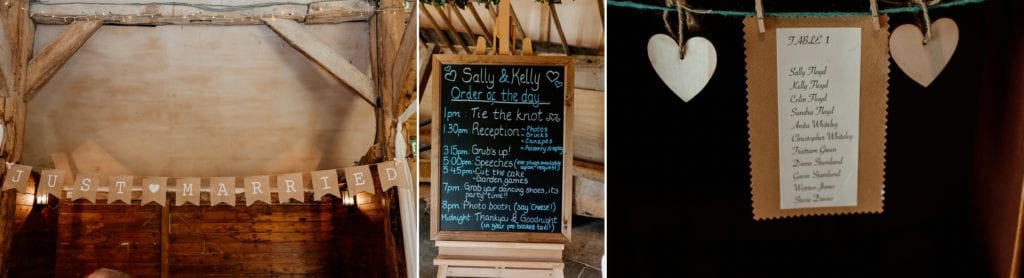 JUST ♥ MARRIED
Sally & Kelly
Order of the day
1pm : Tie the knot
1.30pm: Reception - Photos
- Drinks
- Canapes
- Falconry display
3.15pm: Grub's up!
5:00pm: Speeches (ear plugs available upon request!)
5:45pm: Cut the cake
- Garden games
7pm: Grab your dancing shoes, its
party-time!!
8pm: Photo booth (say 'Cheese'!)
Midnight: Thankyou & Goodnight
(in your pre-booked taxi!)
TABLE 1
Sally Floyd
Kelly Floyd
Colin Floyd
Sandra Floyd
Anita Whiteley
Christopher Whiteley
Tristram Green
Diane Staniland
Gavin Staniland
Warren Jones
Stevie Davies